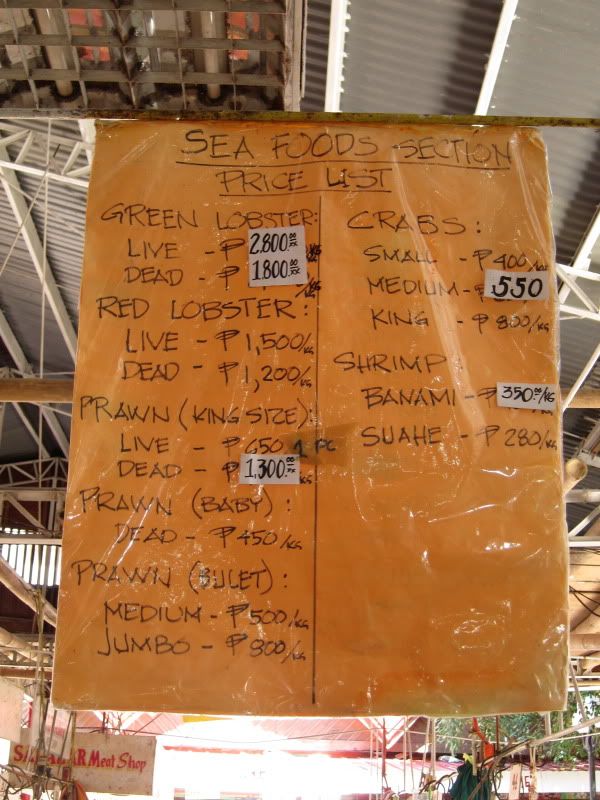 SEA FOODS SECTION
PRICE LIST
GREEN LOBSTER:
LIVE - ₱ 2,800.00/K
DEAD - ₱ 1,800.00/K
RED LOBSTER:
LIVE - ₱1,500/KG
DEAD - ₱1,200/KG
PRAWN (KING SIZE):
LIVE - ₱650 1 PC
DEAD - ₱1,300.00/K
PRAWN (BABY):
DEAD - ₱450/KG
PRAWN (BULET):
MEDIUM - ₱500/KG
JUMBO - ₱800/KG
CRABS:
SMALL - ₱400/KG
MEDIUM - ₱ 550
KING - ₱800/KG
SHRIMP:
BANAMI - ₱ 350.00/KG
SUAHE - ₱280/KG
Meat Shop